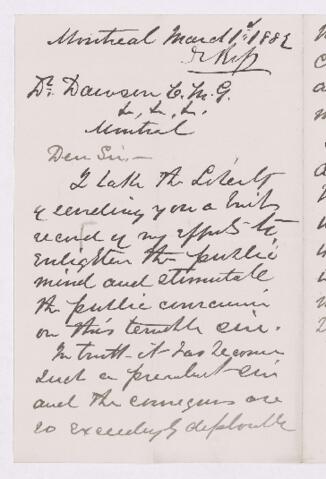 Montreal March 1st 1882
Dr. Dawson C.M.G.
&. &. &.
Montreal
Dear Sir,—
I take the Liberty
of sending you a brief
record of my efforts to
enlighten the public
mind and stimulate
the public conscience
on this terrible sin.
In truth it has become
such a prevalent sin
and the consequences are
so exceedingly deplorable